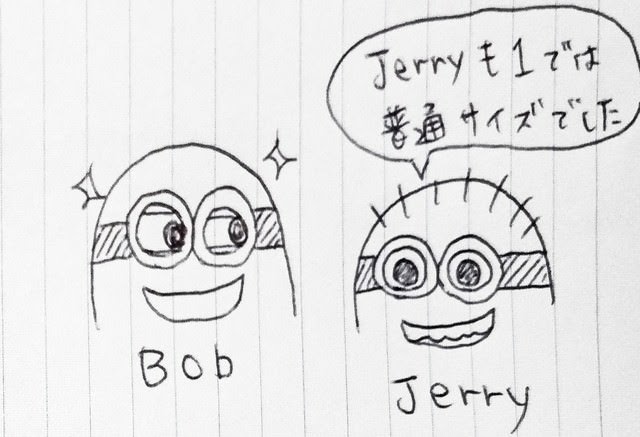 Jerryも1では
普通サイズでした
Bob
Jerry